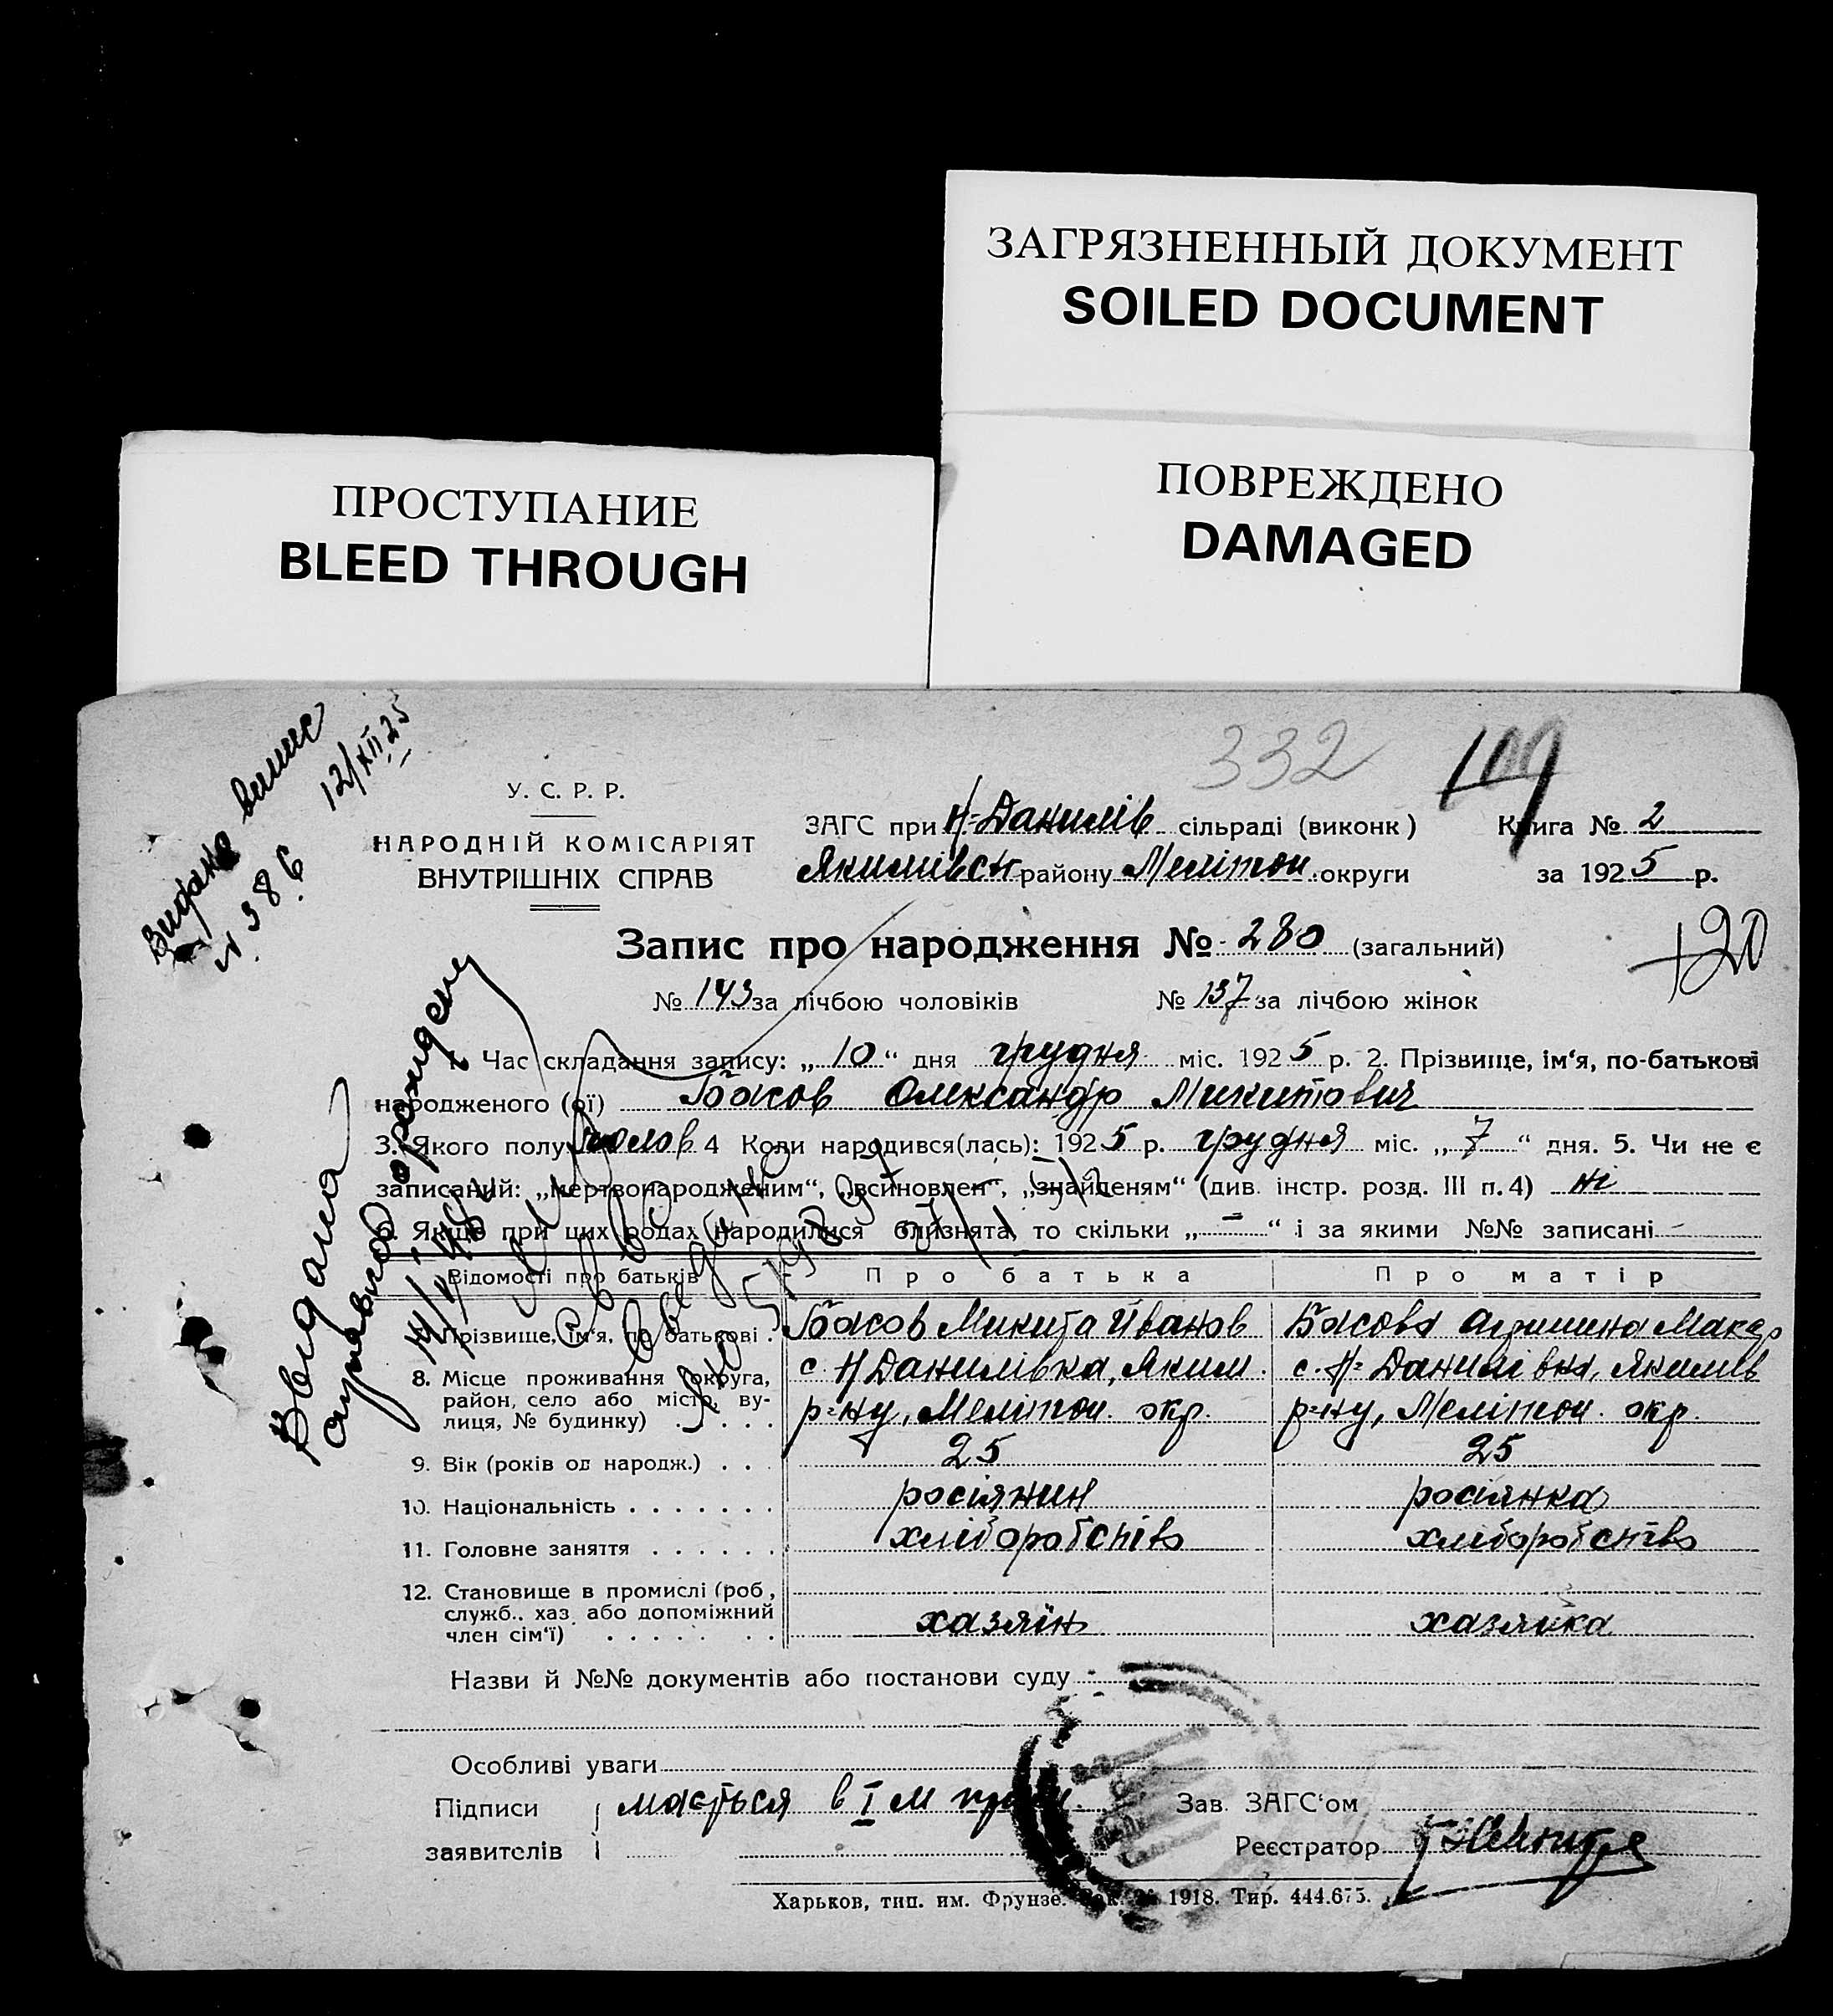 ЗАГРЯЗНЕННЫЙ ДОКУМЕНТ
SOILED DOCUMENT
ПРОСТУПАНИЕ
BLEED THROUGH
ПОВРЕЖДЕНО
DAMAGED
Видано випис
12/XII 25
N. 386
332
У. С. Р. Р.
НАРОДНІЙ КОМІСАРІЯТ
ВНУТРІШНІХ СПРАВ
ЗАГС при Н-Данилів сільраді (виконк) Книга № 2
Якимівськ району Мелітоп округи за 1925 р.
Запис про народження № 280 (загальний)
+20
№ 143 за лічбою чоловіків № 137 за лічбою жінок
1. Час складання запису: „10" дня грудня міс. 1925 р. 2. Прізвище, ім'я, по-батькові
народженого (ої) Басов Олександр Микитович
3. Якого полу чолов 4 Коли народився(лась): 1925 р. грудня міс. „7" дня. 5. Чи не є
записаний: „мертвонародженим", „всиновлен", „знайденям" (див. інстр. розд. III п. 4) ні
6. Якщо при цих родах народилися близнята, то скільки „–" і за якими №№ записані
Відомості про батьків Про батька Про матір
7. Прізвище, ім'я, по батькові . Басов Микита Иванов Басова Макар
8. Місце проживання (округа, с. Н Данилівка, Яким. с. Н-Данилівка, Якимів
район, село або місто, ву-
лиця, № будинку) . . . . р-ну, Мелітоп. окр. р-ну, Мелітоп. окр.
9. Вік (років од народж.) . . . 25 25
10. Національність . . . . . . . росіянин росіянка
11. Головне заняття . . . . . . хліборобство хліборобство
12. Становище в промислі (роб,
служб.. хаз. або допоміжний
член сім'ї) . . . . . . . хазяїн хазяйка
Назви й №№ документів або постанови суду
Особливі уваги
Підписи мається в I м Зав. ЗАГС'ом
заявителів Реєстратор
Харьков, тип. им. Фрунзе. 1918. Тир. 444.675.